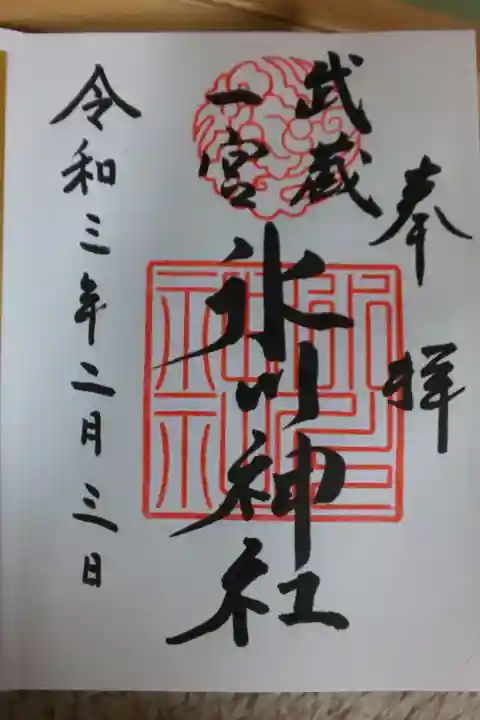 奉拝
武蔵
一宮
氷川神社
令和三年二月三日